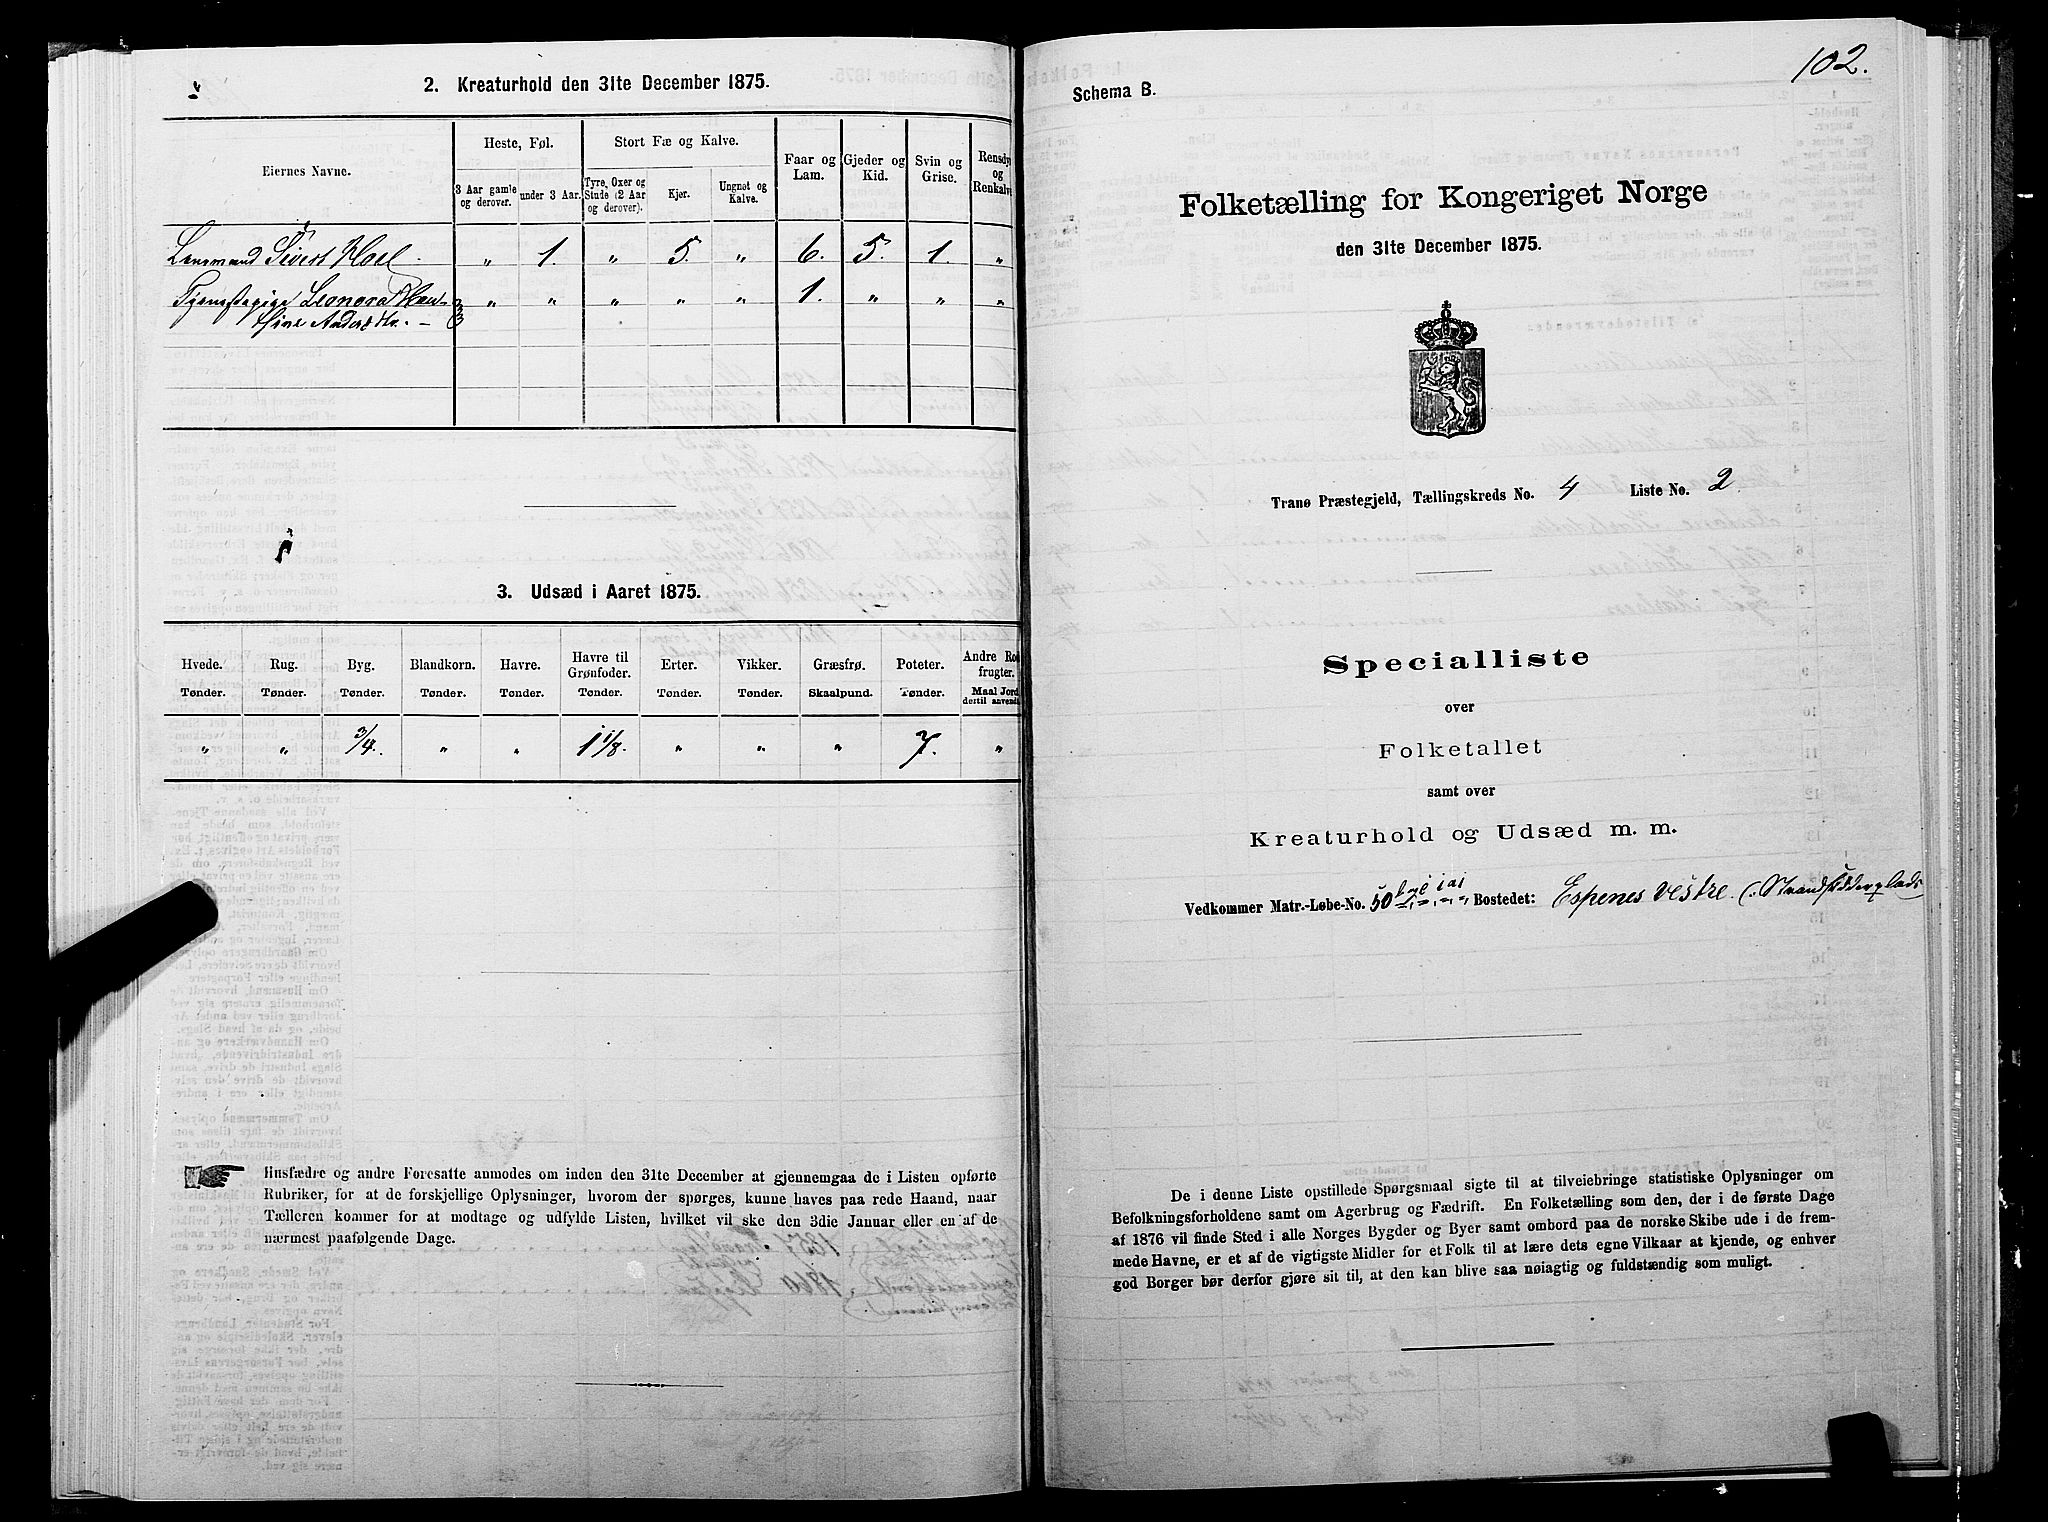 2. Kreaturhold den 31te December 1875.
Eiernes Navne.
Heste, Føl.
Stort Fæ og Kalve.
Faar og Lam.
Gjeder og Kid.
Svin og Grise.
Rensdy
og
Renkalve
3 Aar gamle og derover.
under 3 Aar.
Tyre, Oxer og Stude (2 Aar og derover).
Kjør.
Ungnøt og Kalve.
Lensmand Sivert Hoel. " 1. " 5. " 6. 5. 1. "
Tjenestepige Leonora Han- " " " " " 1. " " "
sine Andersdtr. —
3. Udsæd i Aaret 1875.
Hvede. Rug. Byg. Blandkorn. Havre. Havre til Grønfoder. Erter. Vikker. Græsfrø. Poteter. Andre Rod
frugter.
Tønder. Tønder. Tønder. Tønder. Tønder. Tønder. Tønder. Tønder. Skaalpund. Tønder. Maal Jord
dertil anvendt
" " 3/4. " " 1 1/8. " " " 7. "
Husfædre og andre Foresatte anmodes om inden den 31te December at gjennemgaa de i Listen opførte
Rubriker, for at de forskjellige Oplysninger, hvorom der spørges, kunne haves paa rede Haand, naar
Tælleren kommer for at modtage og udfylde Listen, hvilket vil ske den 3die Januar eller en af de
nærmest paafølgende Dage.
102.
Schema B.
Folketælling for Kongeriget Norge
den 31te December 1875.
Tranø Præstegjeld, Tællingskreds No. 4 Liste No. 2
Specialliste
over
Folketallet
samt over
Kreaturhold og Udsæd m. m.
Vedkommer Matr.-Løbe-No. 50 Bostedet: Espenes vestre (: Strandsidderplads
De i denne Liste opstillede Spørgsmaal sigte til at tilveiebringe statistiske Oplysninger om
Befolkningsforholdene samt om Agerbrug og Fædrift. En Folketælling som den, der i de første Dage
af 1876 vil finde Sted i alle Norges Bygder og Byer samt ombord paa de norske Skibe ude i de frem-
mede Havne, er et af de vigtigste Midler for et Folk til at lære dets egne Vilkaar at kjende, og enhver
god Borger bør derfor gjøre sit til, at den kan blive saa nøiagtig og fuldstændig som muligt.